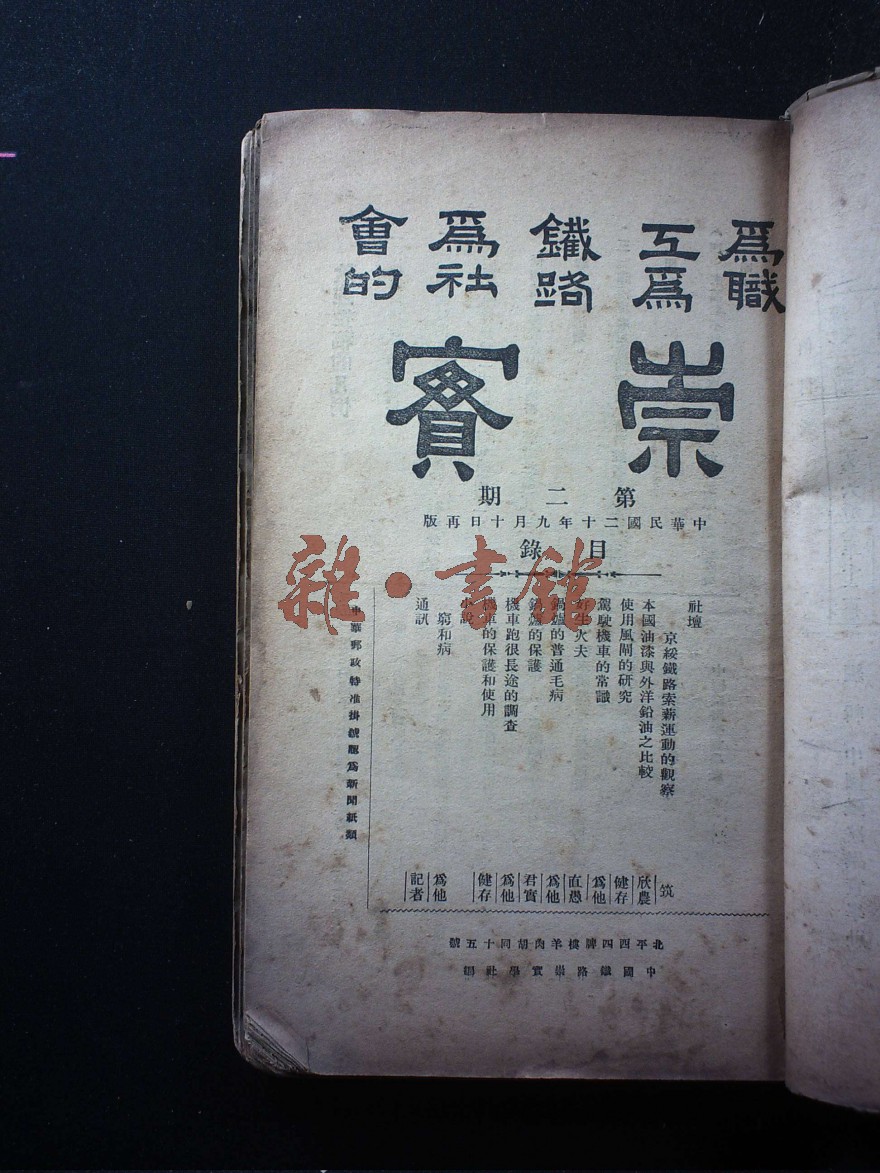 爲職
工爲
鐵路
爲社
會的
崇實
第二期
中華民國二十年九月十日再版
目錄
社壇
京綏鐵路索薪運動的觀察 筑
本國油漆與外洋鉛油之比較 欣農
使用風閘的研究 健存
駕駛機車的常識 爲他
好生火夫 直愚
鍋爐的普通毛病 爲他
鍋爐的保護 君實
機車跑很長途的調查 爲他
機車的保護和使用 健存
小說
窮和病 爲他
通訊 記者
中華郵政特准掛號認爲新聞紙類
北平西四牌樓羊肉胡同十五號
中國鐵路崇實學社編
雜·書館